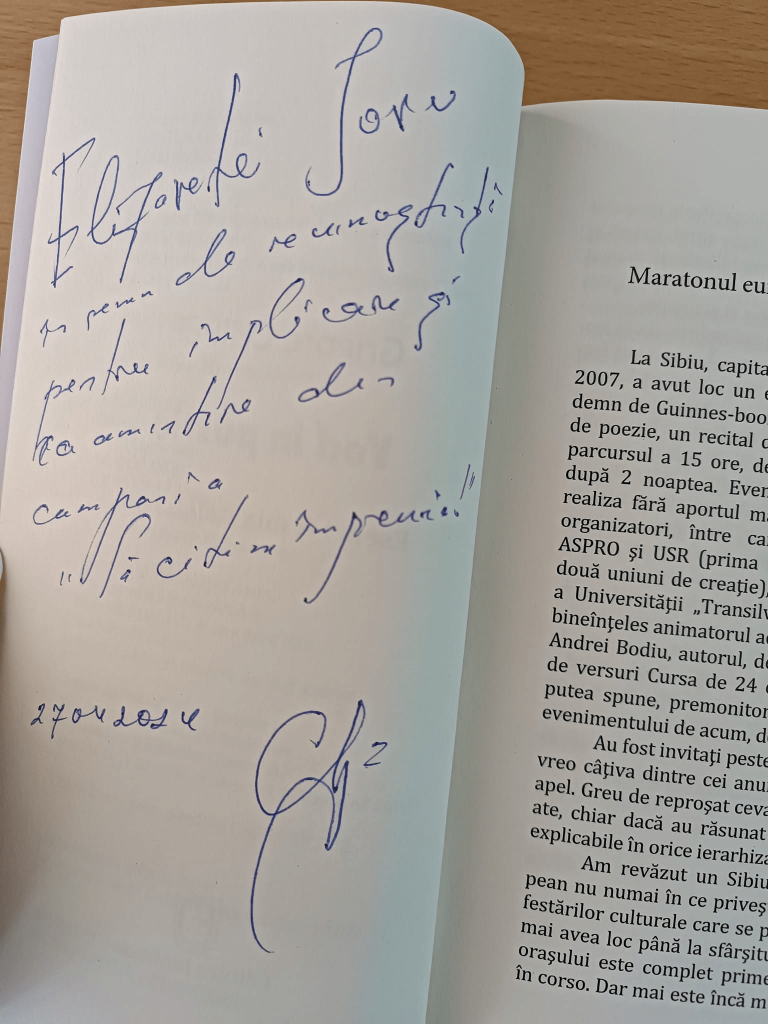 Elizavetei Soru
în semn de recunoștință
pentru implicare și
ca amintire din
campania
"Să citim împreună!"
27 04 2024
Maratonul eu
La Sibiu, capita
2007, a avut loc un e
demn de Guinnes-boo
de poezie, un recital d
parcursul a 15 ore, de
după 2 noaptea. Even
realiza fără aportul m
organizatori, între ca
ASPRO și USR (prima
două uniuni de creație),
a Universității „Transilv
bineînțeles animatorul a
Andrei Bodiu, autorul, d
de versuri Cursa de 24
putea spune, premonitor
evenimentului de acum, d
Au fost invitați peste
vreo câțiva dintre cei anu
apel. Greu de reproșat ceva
ate, chiar dacă au răsunat
explicabile în orice ierarhiza
Am revăzut un Sibiu
pean nu numai în ce priveș
festărilor culturale care se p
mai avea loc până la sfârșitu
orașului este complet prime
în corso. Dar mai este încă m